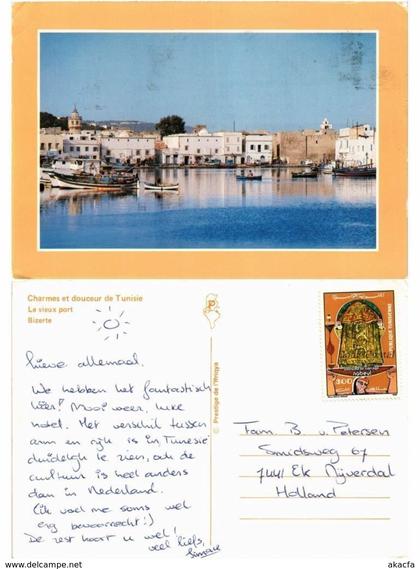 Charmes et douceur de Tunisie
Le vieux port
Bizerte
lieve allemaal,
We hebben het fantastisch
hier! Mooi weer, leuke
hotel. Het verschil tussen
arm en rijk is in Tunesië
duidelijk te zien, ook de
cultuur is heel anders
dan in Nederland.
(ik voel me soms wel
erg bevoorrecht!)
De rest hoort u wel!
veel liefs,
© Prestige de l'Ifriqya
REPUBLIQUE TUNISIENNE
nabeul
300
Fam. B v. Petersen
Smidsweg 67
7441 EK Nijverdal
Holland
www.delcampe.net
akacfa